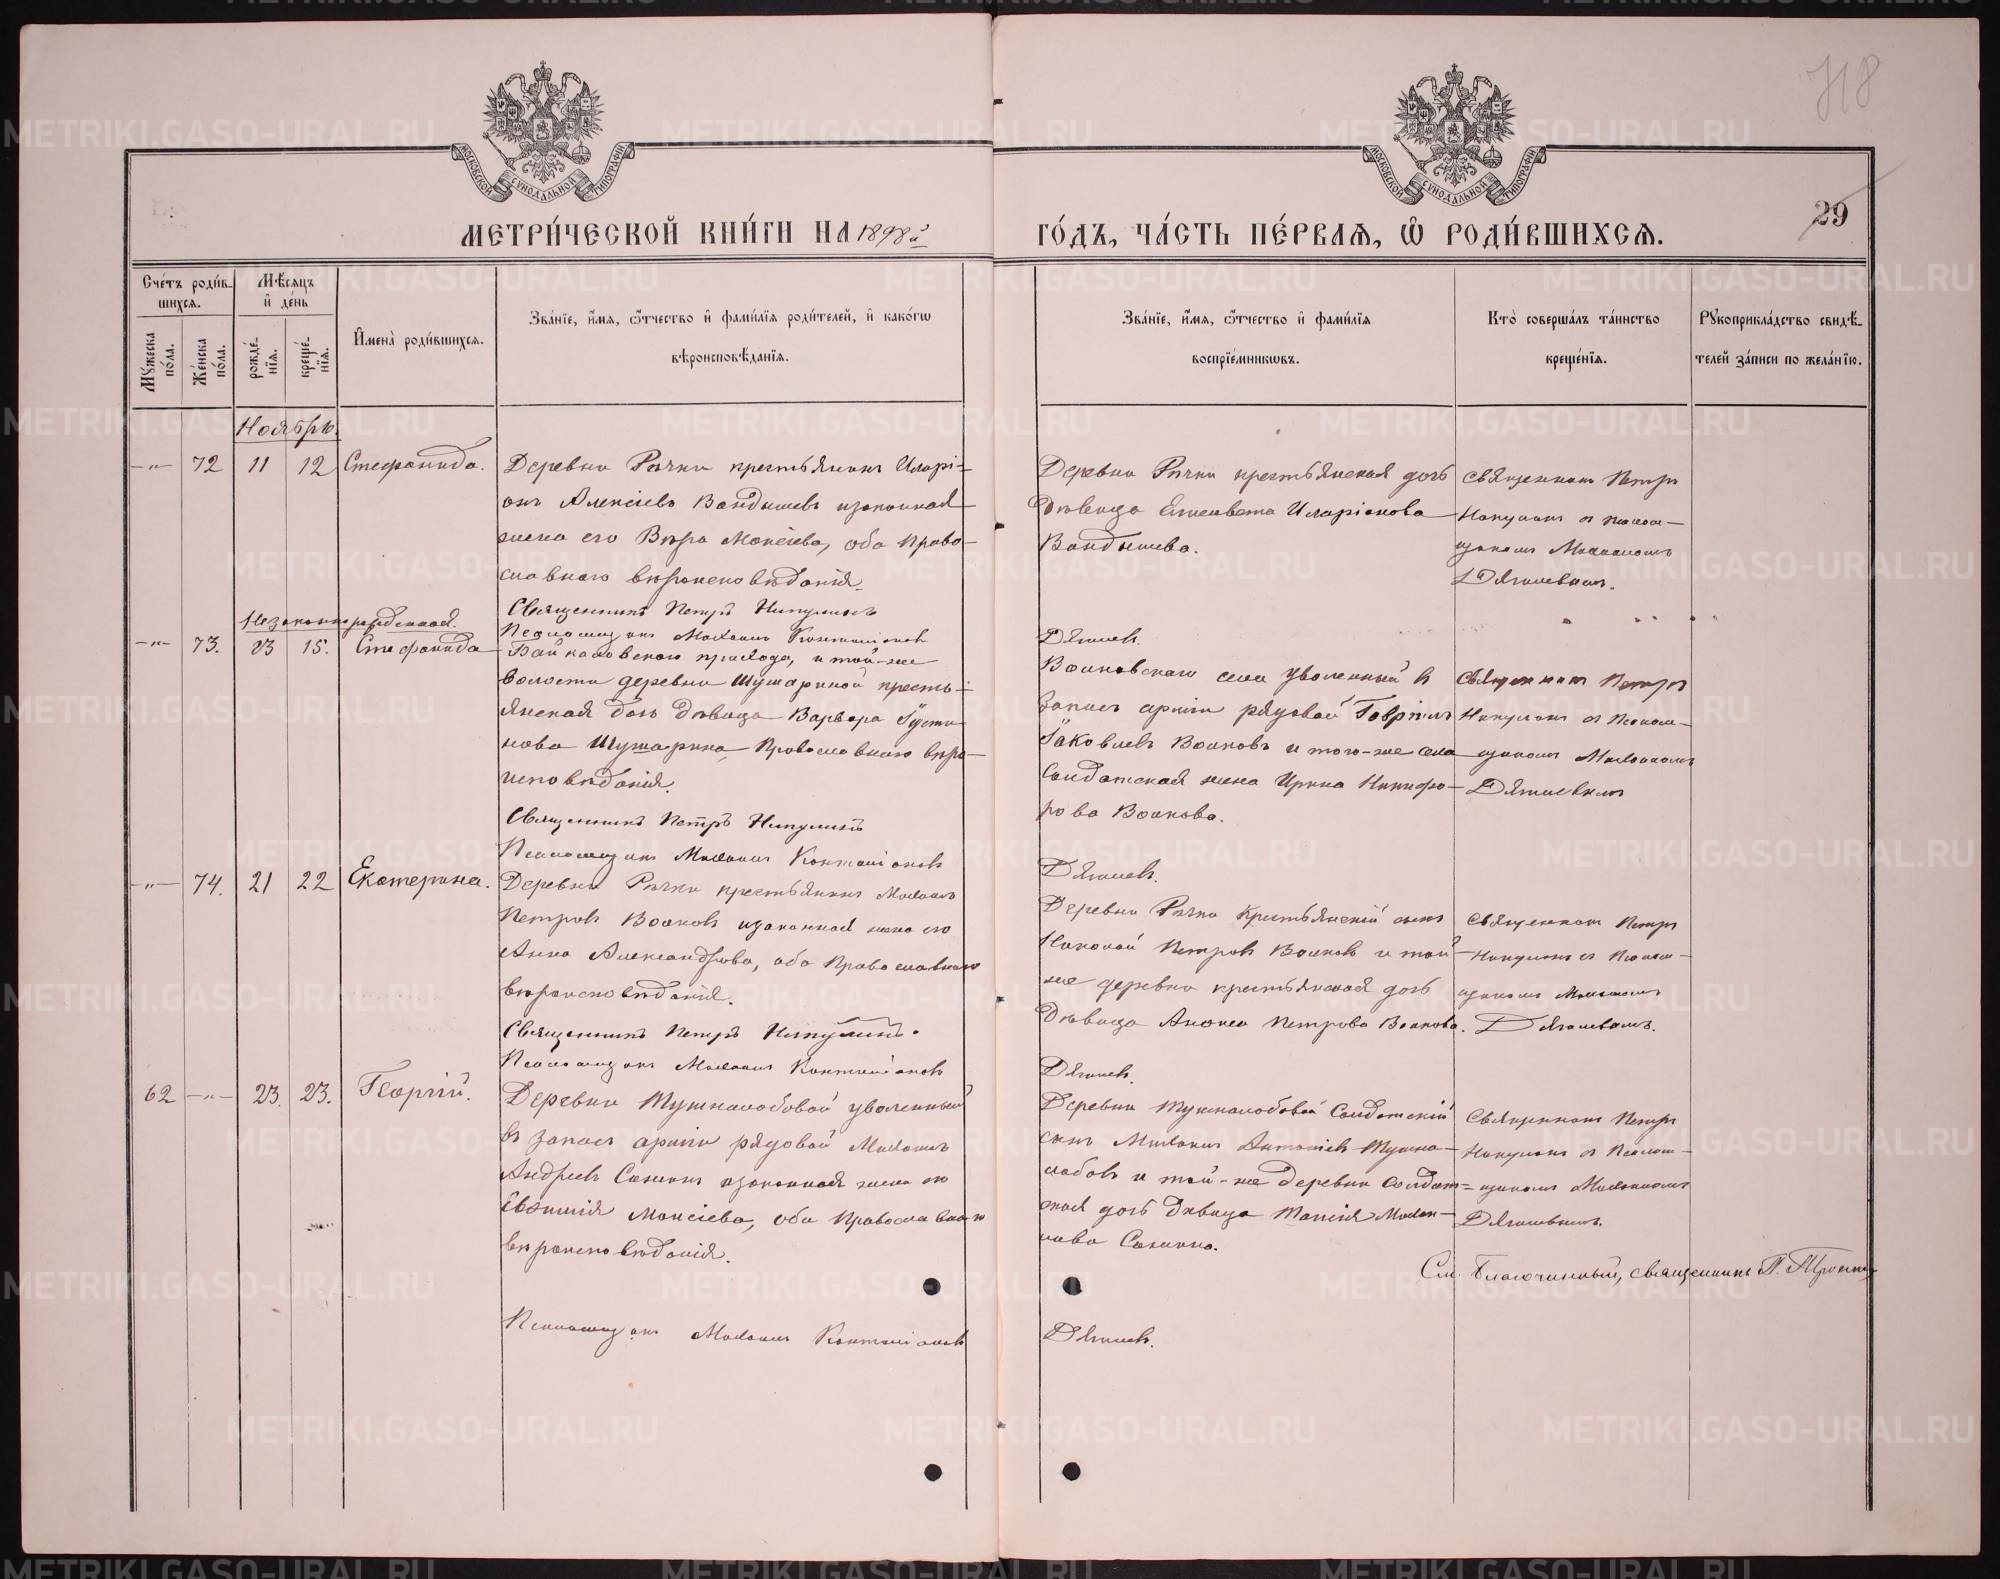 718
29
МОСКОВСКОЙ СУНОДАЛЬНОЙ ТИПОГРАФІИ
МОСКОВСКОЙ СУНОДАЛЬНОЙ ТИПОГРАФІИ
МЕТРИ́ЧЕСКОЙ КНИ́ГИ НА 1898й
ГО́ДЪ, ЧА́СТЬ ПЕ́РВАѦ, Ѽ РОДИ́ВШИХСѦ.
Сче́тъ роди́в-
шихсѧ.
Мѣ́сяцъ
и҆ де́нь
Му́жеска по́ла.
Же́нска по́ла.
рожде́нїѧ.
креще́нїѧ.
И҆мена̀ роди́вшихсѧ.
Зва́нїе, и҆́мѧ, ѻ҆́тчество и҆ фами́лїѧ роди́телей, и҆ како́гѡ
вѣроисповѣ́данїѧ.
Зва́нїе, и҆́мѧ, ѻ҆́тчество и҆ фами́лїѧ
воспрїе́мникѡвъ.
Кто̀ соверша́лъ та́инство
креще́нїѧ.
Рꙋкоприкла́дство свидѣ́-
телей за́писи по жела́нїю.
Ноябрь.
—„— 72 11 12 Стефанида.
Деревни Рѣчки крестьянинъ Иларі-
онъ Алексіевъ Вандышевъ изаконная
жена его Вѣра Моисіева, оба Право-
славнаго вѣроисповѣданія.
Священникъ Петръ Никулинъ
Псаломщикъ Михаилъ Континіановъ
Дягилевъ.
Деревни Рѣчки крестьянская дочь
дѣвица Елисавета Иларіонова
Вандышева.
Священникъ Петръ
Никулинъ съ псалом-
щикомъ Михаиломъ
Дягилевымъ.
Незаконнорожденная.
—„— 73. 13 15. Стефанида
Байкаловскаго прихода, и той-же
волости деревни Шушариной кресть-
янская дочь дѣвица Варвара Густи-
нова Шушарина Православнаго вѣро-
исповѣданія.
Священникъ Петръ Никулинъ
Псаломщикъ Михаилъ Континіановъ
Дягилевъ.
Волковскаго села уволенный въ
запасъ арміи рядовой Гавріилъ
Іаковлевъ Волковъ и того-же села
Солдатская жена Ирина Никифо-
рова Волкова.
Священникъ Петръ
Никулинъ съ Псалом-
щикомъ Михаиломъ
Дягилевымъ
—„— 74. 21 22 Екатерина.
Деревни Рѣчки крестьянинъ Михаилъ
Петровъ Волковъ изаконная жена его
Анна Александрова, оба Православнаго
вѣроисповѣданія.
Священникъ Петръ Никулинъ.
Псаломщикъ Михаилъ Континіановъ
Дягилевъ.
Деревни Рѣчки Крестьянскій сынъ
Николай Петровъ Волковъ и той-
же деревни крестьянская дочь
Дѣвица Петрова Волкова.
Священникъ Петръ
Никулинъ съ Псалом-
щикомъ Михаиломъ
Дягилевымъ.
62 —„— 23. 23. Георгій.
Деревни Тушколобовой уволенный
въ запасъ арміи рядовой Михаилъ
Андреевъ Сосинъ изаконная жена его
Моисіева, оба Православнаго
вѣроисповѣданія.
Псаломщикъ Михаилъ Континіановъ
Дягилевъ.
Деревни Тушколобовой Солдатскій
сынъ Михаилъ Антоніевъ Тушко-
лобовъ и той-же деревни Солдат-
ская дочь дѣвица Таисія Михаи-
лова Сосина.
Священникъ Петръ
Никулинъ съ Псалом-
щикомъ Михаиломъ
Дягилевымъ.
См. Благочинный, священникъ П.
METRIKI.GASO-URAL.RU